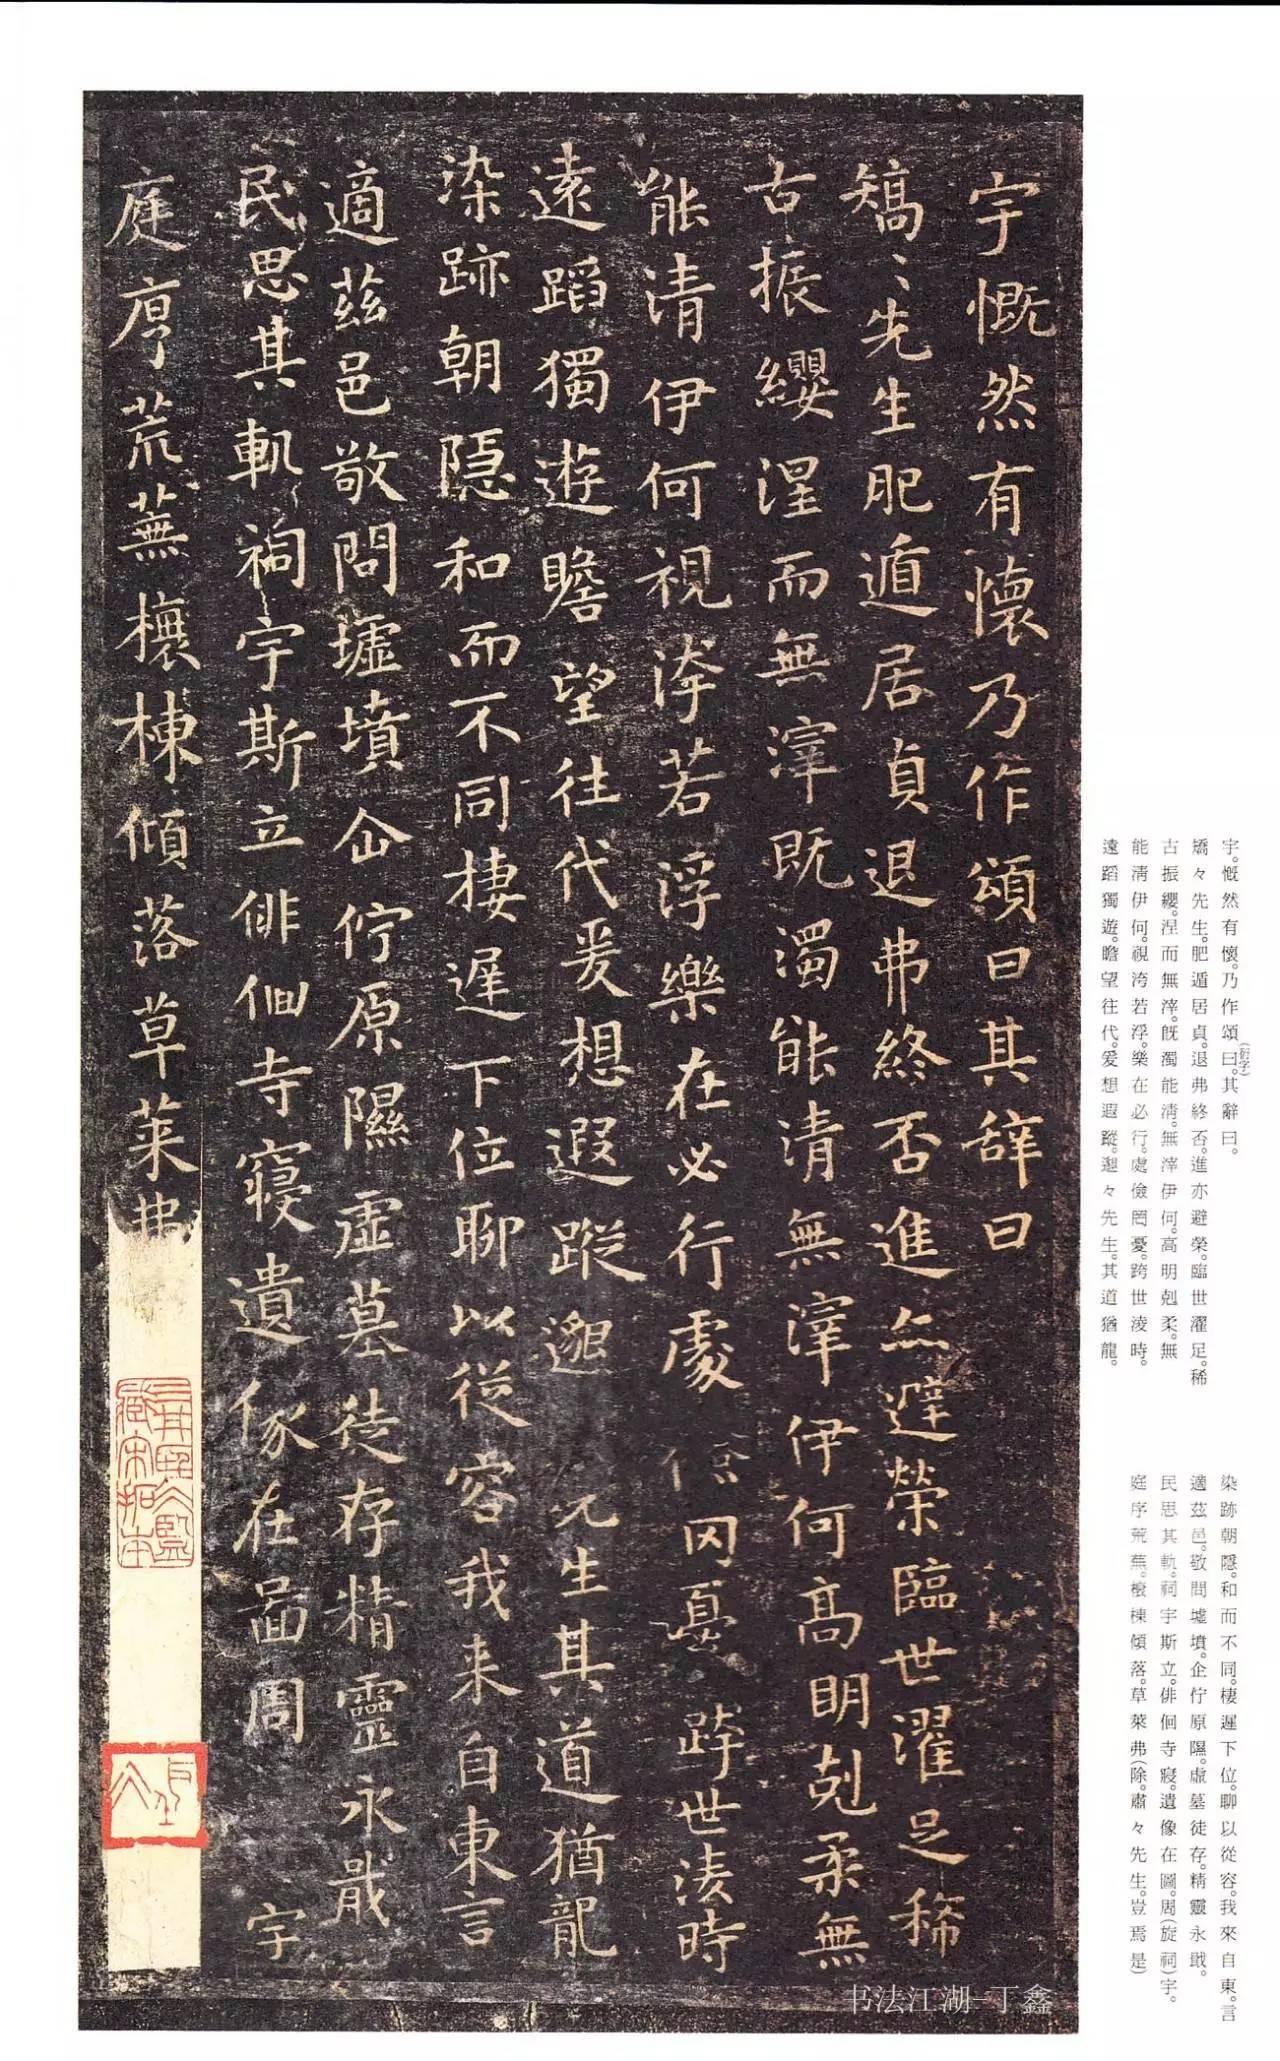 宇慨然有懷乃作頌曰其辞曰
矯〻先生肥遁居貞退弗終否進亦避榮臨世濯足稀
古振纓涅而無滓既濁能清無滓伊何高明剋柔無
能清伊何視洿若浮樂在必行處儉罔憂跨世淩時
遠蹈獨遊瞻望往代爰想遐蹤邈先生其道猶龍
染跡朝隱和而不同棲遲下位聊以從容我来自東言
適茲邑敬問墟墳企佇原隰虛墓徒存精靈永戢
民思其軌祠宇斯立俳佪寺寢遺像在圖周 宇
庭序荒蕪榱棟傾落草萊弗
三井
宋拓本
宇。慨然有懷。乃作頌曰。其辭曰。
(衍字)
矯々先生。肥遁居貞。退弗終否。進亦避榮。臨世濯足。稀
古振纓。涅而無滓。既濁能清。無滓伊何。高明剋柔。無
能清伊何。視洿若浮。樂在必行。處儉罔憂。跨世淩時。
遠蹈獨遊。瞻望往代。爰想遐蹤。邈々先生。其道猶龍。
染跡朝隱。和而不同。棲遲下位。聊以從容。我來自東。言
適茲邑。敬問墟墳。企佇原隰。虛墓徒存。精靈永戢。
民思其軌。祠宇斯立。俳佪寺寢。遺像在圖。周(旋祠)宇。
庭序荒蕪。榱棟傾落。草萊弗(除。肅々先生。豈焉是)
书法江湖-丁鑫